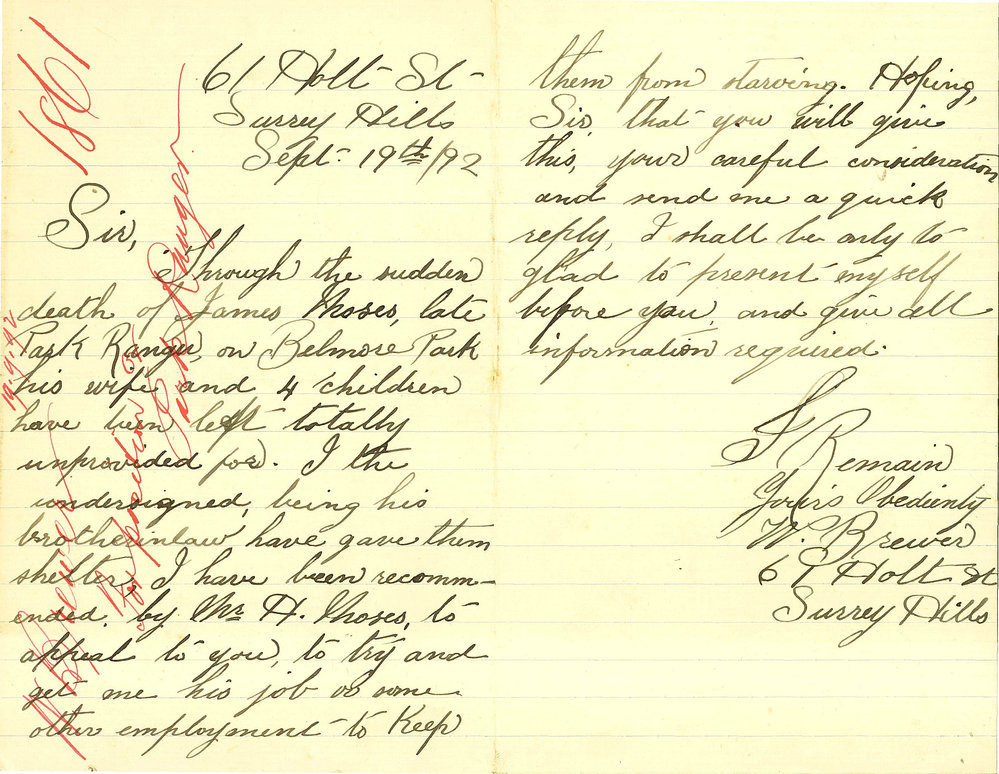 61 Holt St
Surrey Hills
Sept 19th/92
Sir,
Through the sudden
death of James Moses, late
Park Ranger, on Belmore Park
his wife and 4 children
have been left totally
unprovided for. I the
undersigned, being his
brotherinlaw have gave them
shelter, I have been recomm-
ended, by Mr H. Moses, to
appeal to you, to try and
get me his job or some
other employment to Keep
them from starving. Hoping,
Sir, that you will give
this, your careful consideration
and send me a quick
reply, I shall be only to
glad to present myself
before you, and give all
information required.
I Remain
Your's Obediently
W. Brewer
61 Holt St
Surrey Hills
1861
19.9.92
W Brewer
for position of
Park Ranger